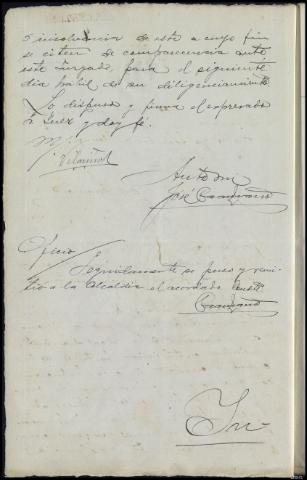 ó insolvencia de este a cuyo fin
se citen de comparecencia ante
este Juzgado, para el siguiente
dia habil de su diligenciamiento.
Lo dispuso y firma el expresado
Sr Juez y doy fé.
Vilariño
Ante mi
José
Oficio
Seguidamente se puso y remi-
tió a la Alcaldia el acordado